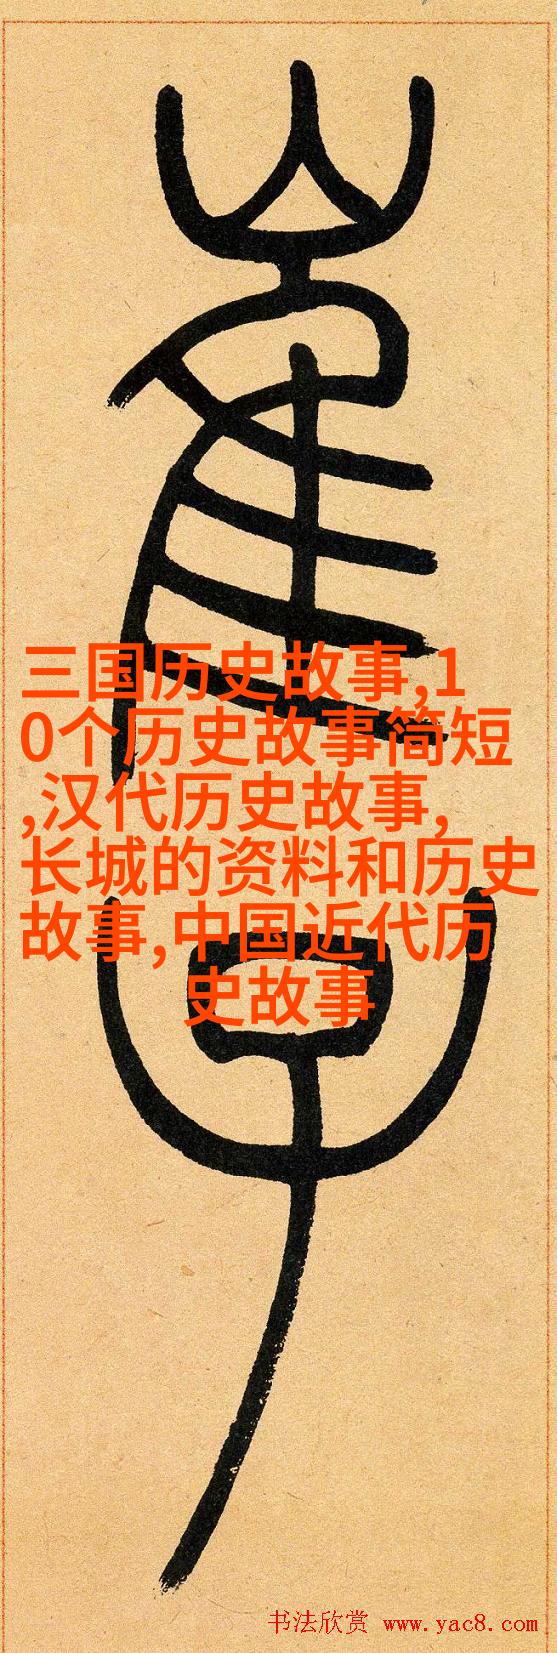 崔
三国历史故事,1
0个历史故事简短
,汉代历史故事,
长城的资料和历史
故事,中国近代历
史故事
书法欣赏 www.yac8.com